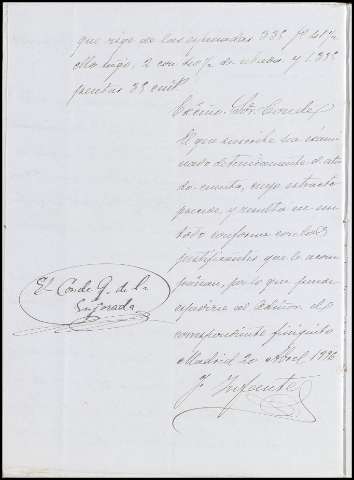 que rige de las espresadas 33
ello rige, 2 con de y 133
pesetas 33 cent.
Excmo. Sor. Conde
El que suscribe ha exami
nado detenidamente el
cuenta, cuyo extracto
precede, y resulta en un
todo conforme con los
justificantes que le acom
pañan, por lo que puede
espedirse al Editor el
correspondiente finiquito
Madrid 20 Abril
J. Infante
El Conde G. de la
Enjarada